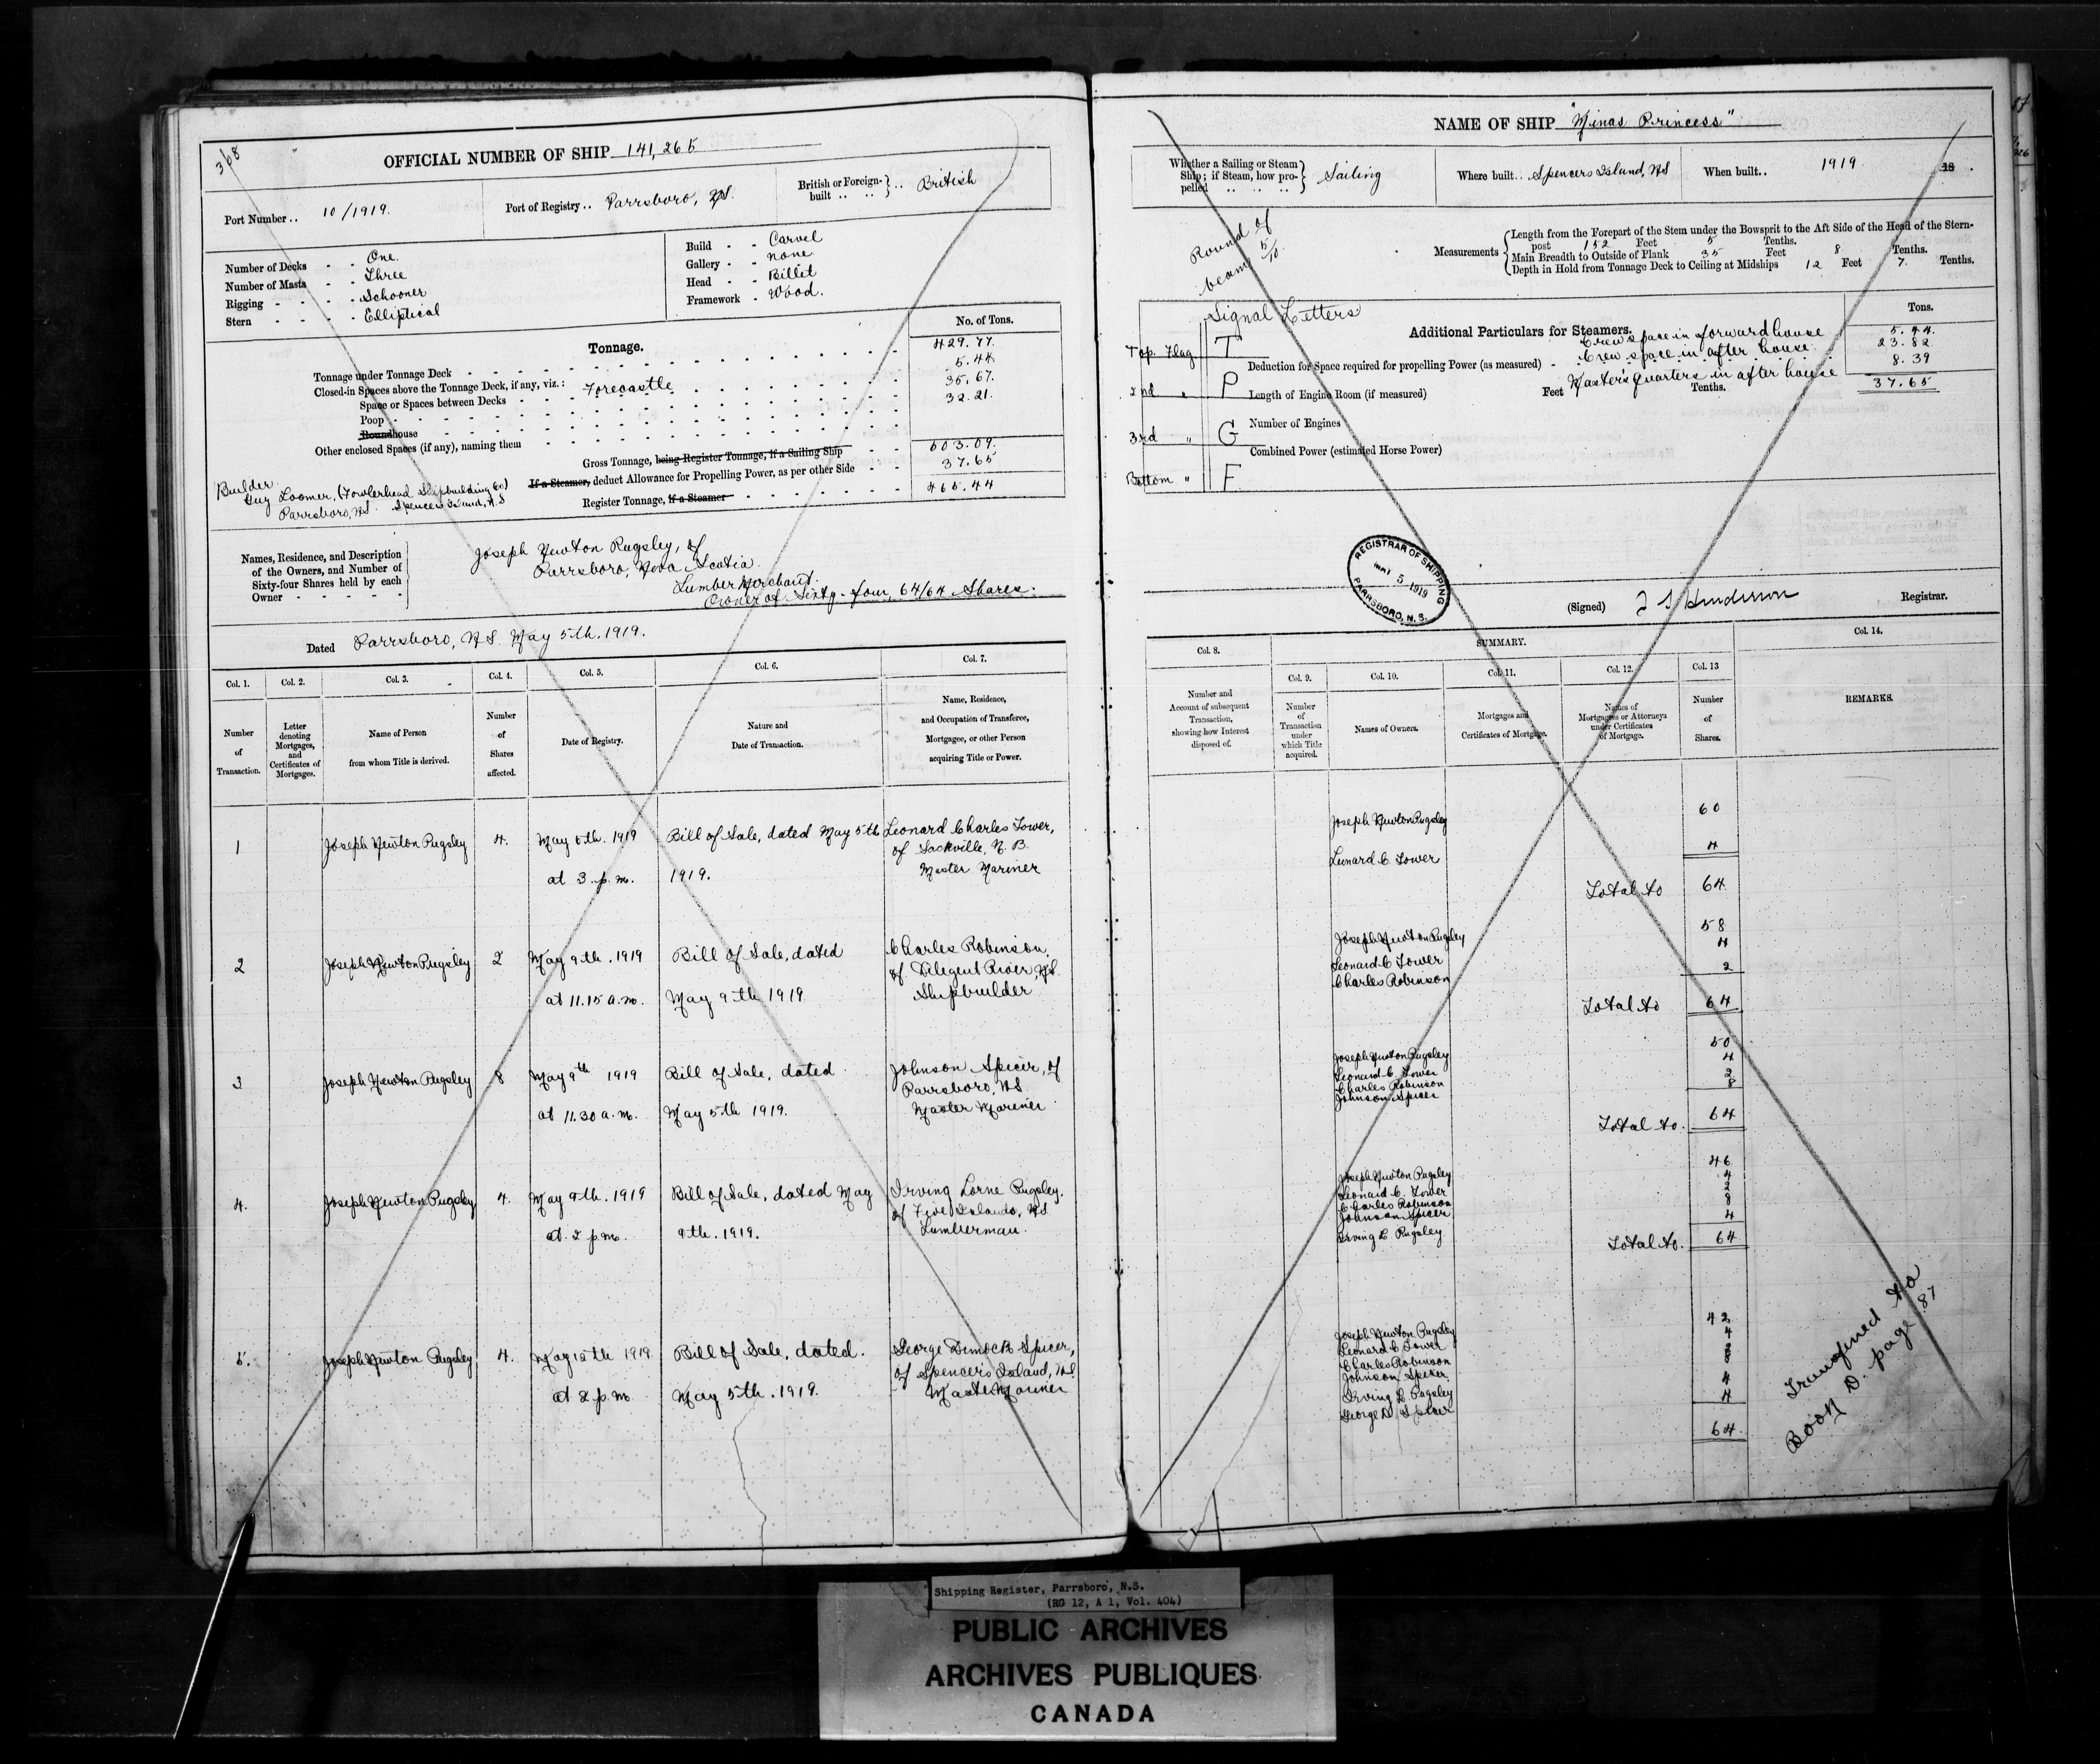 368
OFFICIAL NUMBER OF SHIP 141,265
Port Number .. 10/1919.
Port of Registry .. Parrsboro, N.S.
British or Foreign-built .. .. } .. British
Number of Decks - - One
Number of Masts - - Three
Rigging - - - - Schooner
Stern - - - - Elliptical
Build - - Carvel
Gallery - - none
Head - - Billet
Framework - Wood.
Tonnage.
No. of Tons.
Tonnage under Tonnage Deck 429.77
Closed-in Spaces above the Tonnage Deck, if any, viz.: Forecastle 5.44
Space or Spaces between Decks 35.67
Poop 32.21
Roundhouse
Other enclosed Spaces (if any), naming them
Gross Tonnage, being Register Tonnage, if a Sailing Ship 503.09
If a Steamer, deduct Allowance for Propelling Power, as per other Side 37.65
Register Tonnage, if a Steamer 465.44
Builder
Guy Loomer, (Fowlerhead Shipbuilding Co)
Parrsboro, N.S. Spencers Island, N.S
Names, Residence, and Description of the Owners, and Number of Sixty-four Shares held by each Owner
Joseph Newton Pugsley, of
Parrsboro, Nova Scotia.
Lumber Merchant.
Owner of Sixty-four, 64/64 Shares.
Dated Parrsboro, N.S. May 5th. 1919.
Col. 1. Col. 2. Col. 3. Col. 4. Col. 5. Col. 6. Col. 7.
Number of Transaction.
Letter denoting Mortgages, and Certificates of Mortgages.
Name of Person from whom Title is derived.
Number of Shares affected.
Date of Registry.
Nature and Date of Transaction.
Name, Residence, and Occupation of Transferee, Mortgagee, or other Person acquiring Title or Power.
1 Joseph Newton Pugsley 4. May 5th. 1919 Bill of Sale, dated May 5th Leonard Charles Tower,
of Sackville, N.B.
at 3. p.m. 1919. Master Mariner
2 Joseph Newton Pugsley 2 May 9th. 1919 Bill of Sale, dated Charles Robinson,
of Diligent River, N.S.
at 11.15 a.m. May 9th 1919 Shipbuilder
3 Joseph Newton Pugsley 8 May 9th 1919 Bill of Sale, dated Johnson Spicer, of
Parrsboro, N.S
at 11.30 a.m. May 5th 1919. Master Mariner
4. Joseph Newton Pugsley 4. May 9th. 1919 Bill of Sale, dated May Irving Lorne Pugsley.
of Five Islands, N.S
at 2 p.m. 9th. 1919. Lumberman.
5. Joseph Newton Pugsley 4. May 12th 1919 Bill of Sale, dated. George Dimock Spicer,
of Spencer's Island, N.S.
at 2 p.m May 5th. 1919. Master Mariner
NAME OF SHIP "Minas Princess"
Whether a Sailing or Steam Ship; if Steam, how propelled .. .. .. } Sailing
Where built .. Spencers Island, N.S
When built .. 1919 18 .
Round of
beam 5/10.
Measurements
Length from the Forepart of the Stem under the Bowsprit to the Aft Side of the Head of the Stern-
post 152 Feet 5 Tenths.
Main Breadth to Outside of Plank 35 Feet 8 Tenths.
Depth in Hold from Tonnage Deck to Ceiling at Midships 12 Feet 7. Tenths.
Signal Letters
Top. Flag T
2nd " P
3rd " G
Bottom " F
Additional Particulars for Steamers.
Tons.
Crew space in forward house 5.44.
Crew space in after house. 23.82
Deduction for Space required for propelling Power (as measured) 8.39
Master's quarters in after house 37.65
Length of Engine Room (if measured) Feet Tenths.
Number of Engines
Combined Power (estimated Horse Power)
REGISTRAR OF SHIPPING
MAY 5 1919
PARRSBORO, N.S.
(Signed) Henderson Registrar.
Col. 8. SUMMARY. Col. 14.
Col. 9. Col. 10. Col. 11. Col. 12. Col. 13
Number and Account of subsequent Transaction, showing how Interest disposed of.
Number of Transaction under which Title acquired.
Names of Owners.
Mortgages and Certificates of Mortgage.
Names of Mortgagees or Attorneys under Certificates of Mortgage.
Number of Shares.
REMARKS.
Joseph Newton Pugsley 60
Leonard C. Tower 4
Total to 64
Joseph Newton Pugsley 58
Leonard C Tower 4
Charles Robinson 2
Total to 64
Joseph Newton Pugsley 50
Leonard C. Tower 4
Charles Robinson 2
Johnson Spicer 8
Total to. 64
Joseph Newton Pugsley 46
Leonard C. Tower 4
Charles Robinson 2
Johnson Spicer 8
Irving L Pugsley 4
Total to. 64
Joseph Newton Pugsley 42
Leonard C Tower 4
Charles Robinson 2
Johnson Spicer 8
Irving L. Pugsley 4
George D. Spicer 4
64
Transferred to
Book D. page 87
Shipping Register, Parrsboro, N.S.
(RG 12, A 1, Vol. 404)
PUBLIC ARCHIVES
ARCHIVES PUBLIQUES
CANADA